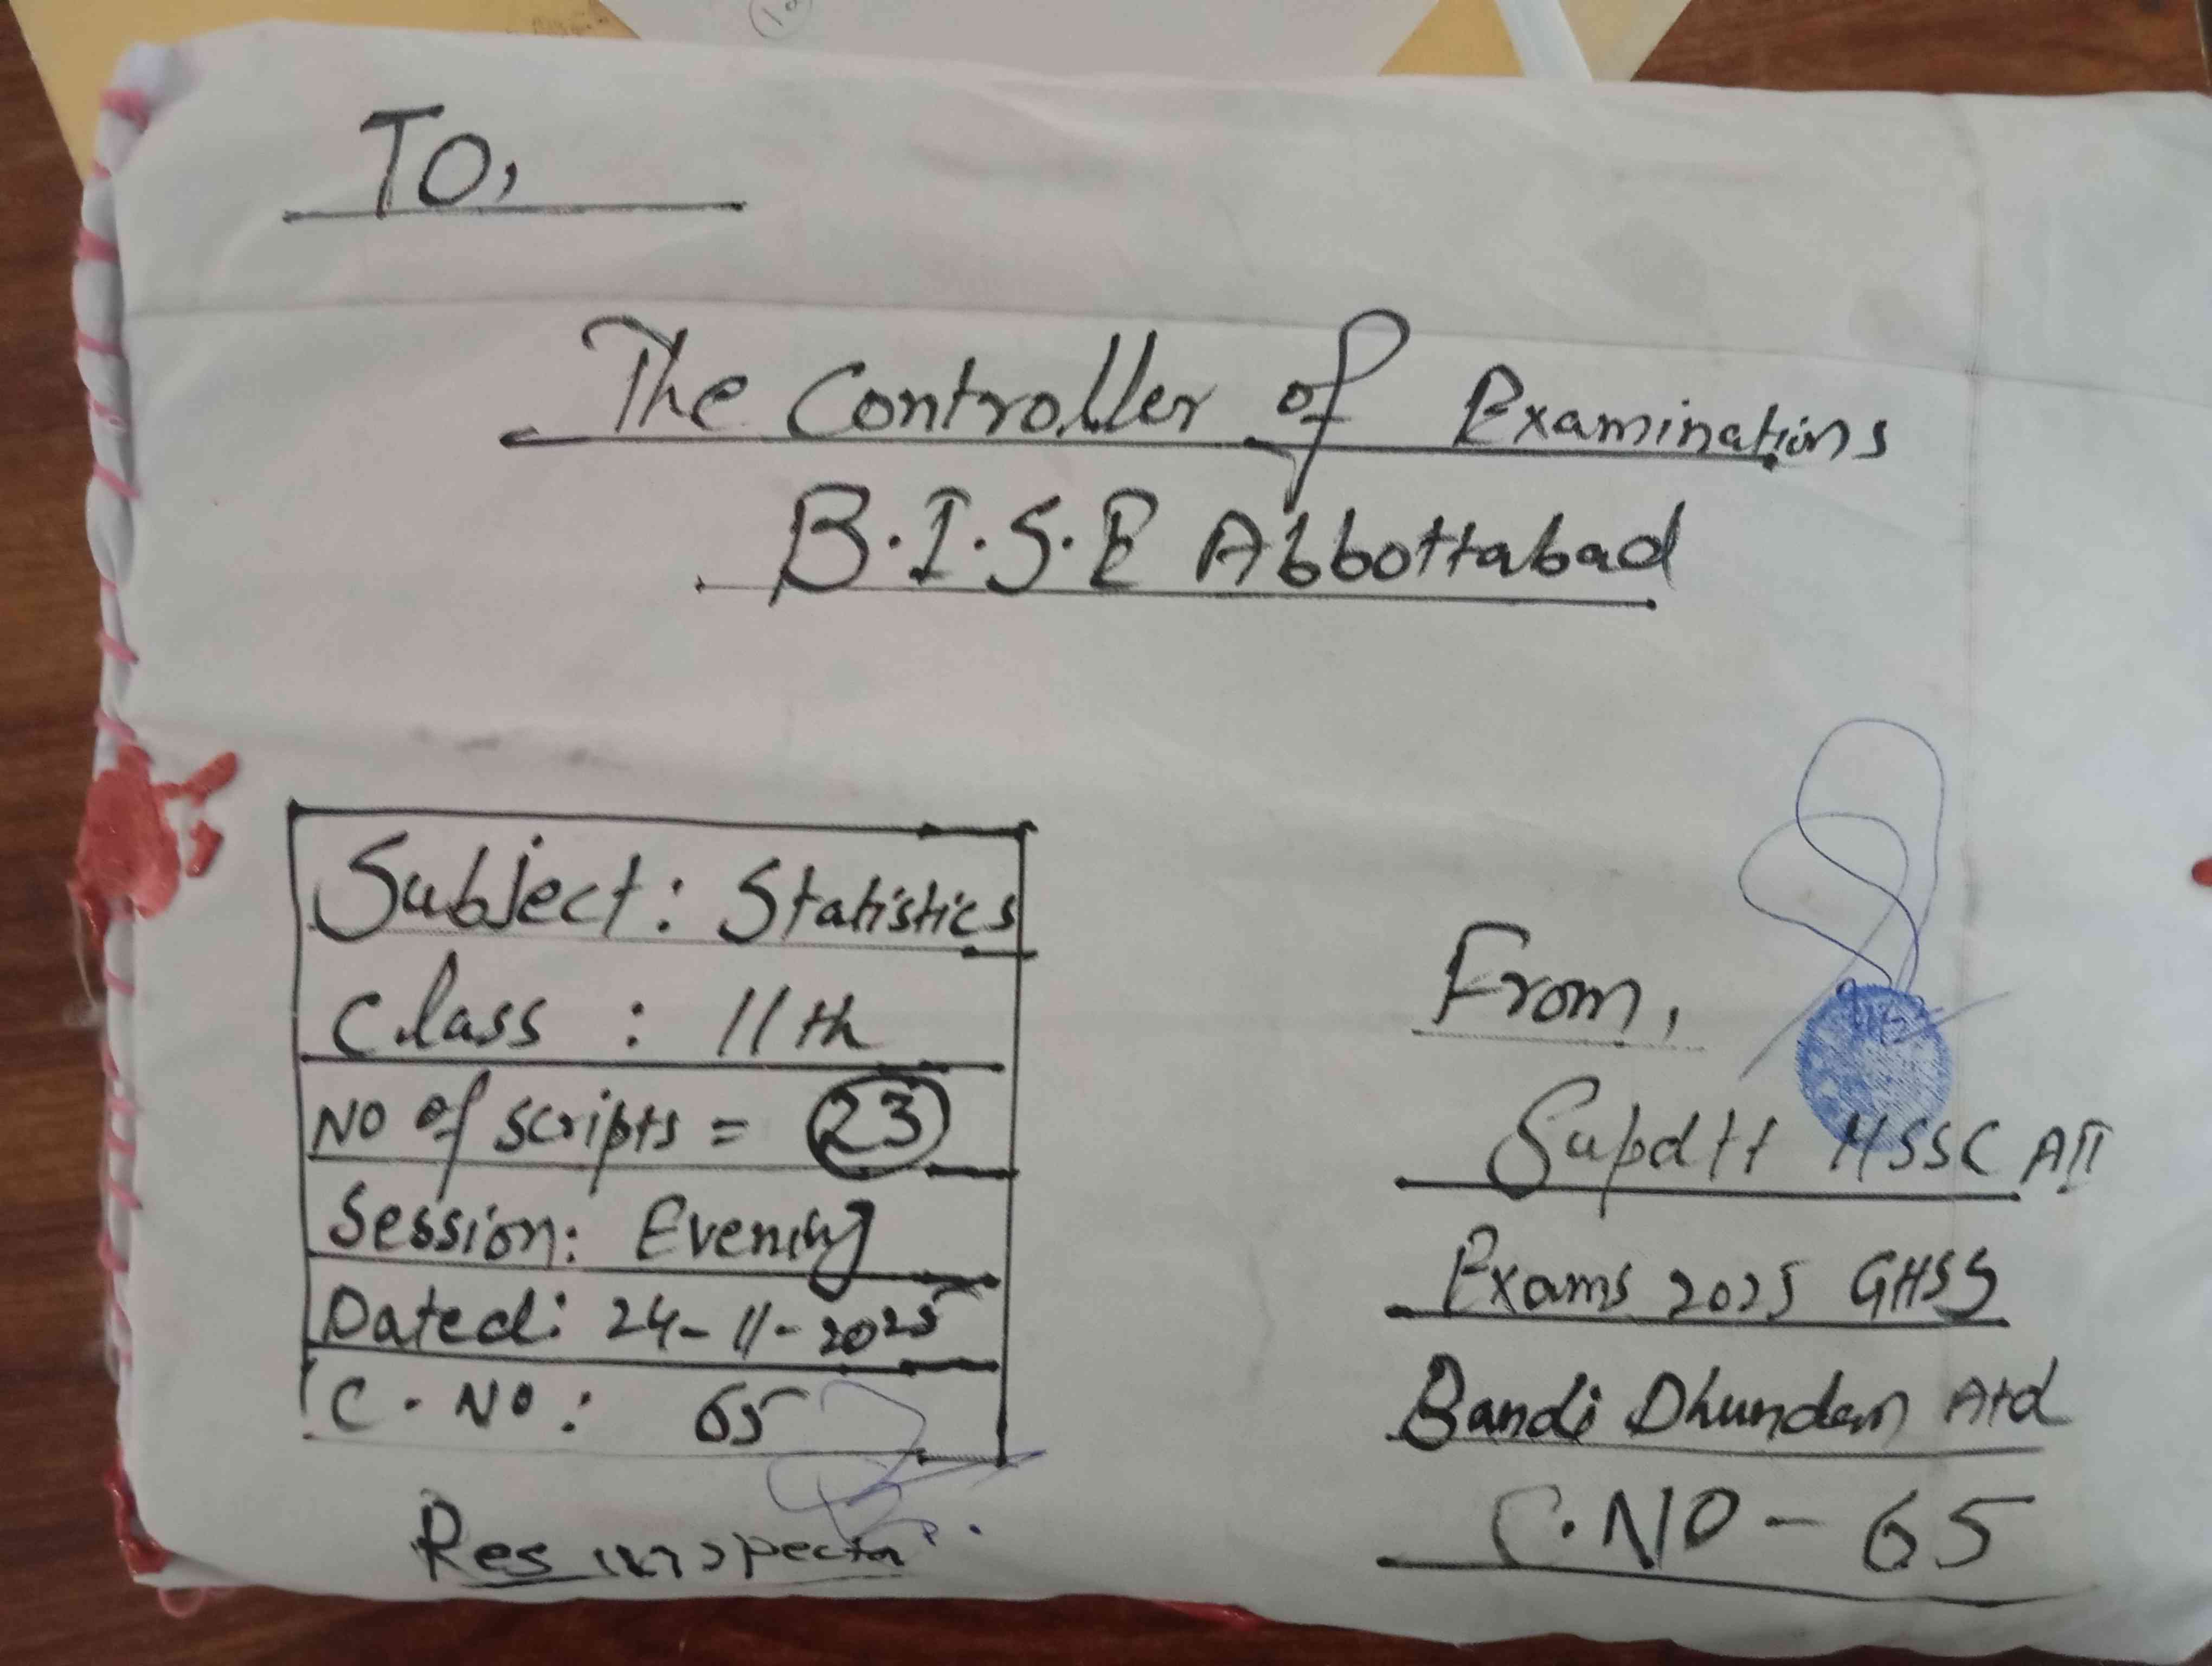 TO,
The Controller of Examinations
B.I.S.E Abbottabad
Subject: Statistics
Class : 11th
NO of scripts = 23
Session: Evening
Dated: 24-11-2025
C.NO: 65
Res inspector
From,
Supdtt HSSC AII
Exams 2025 GHSS
Bandi Dhundan Atd
C.NO - 65